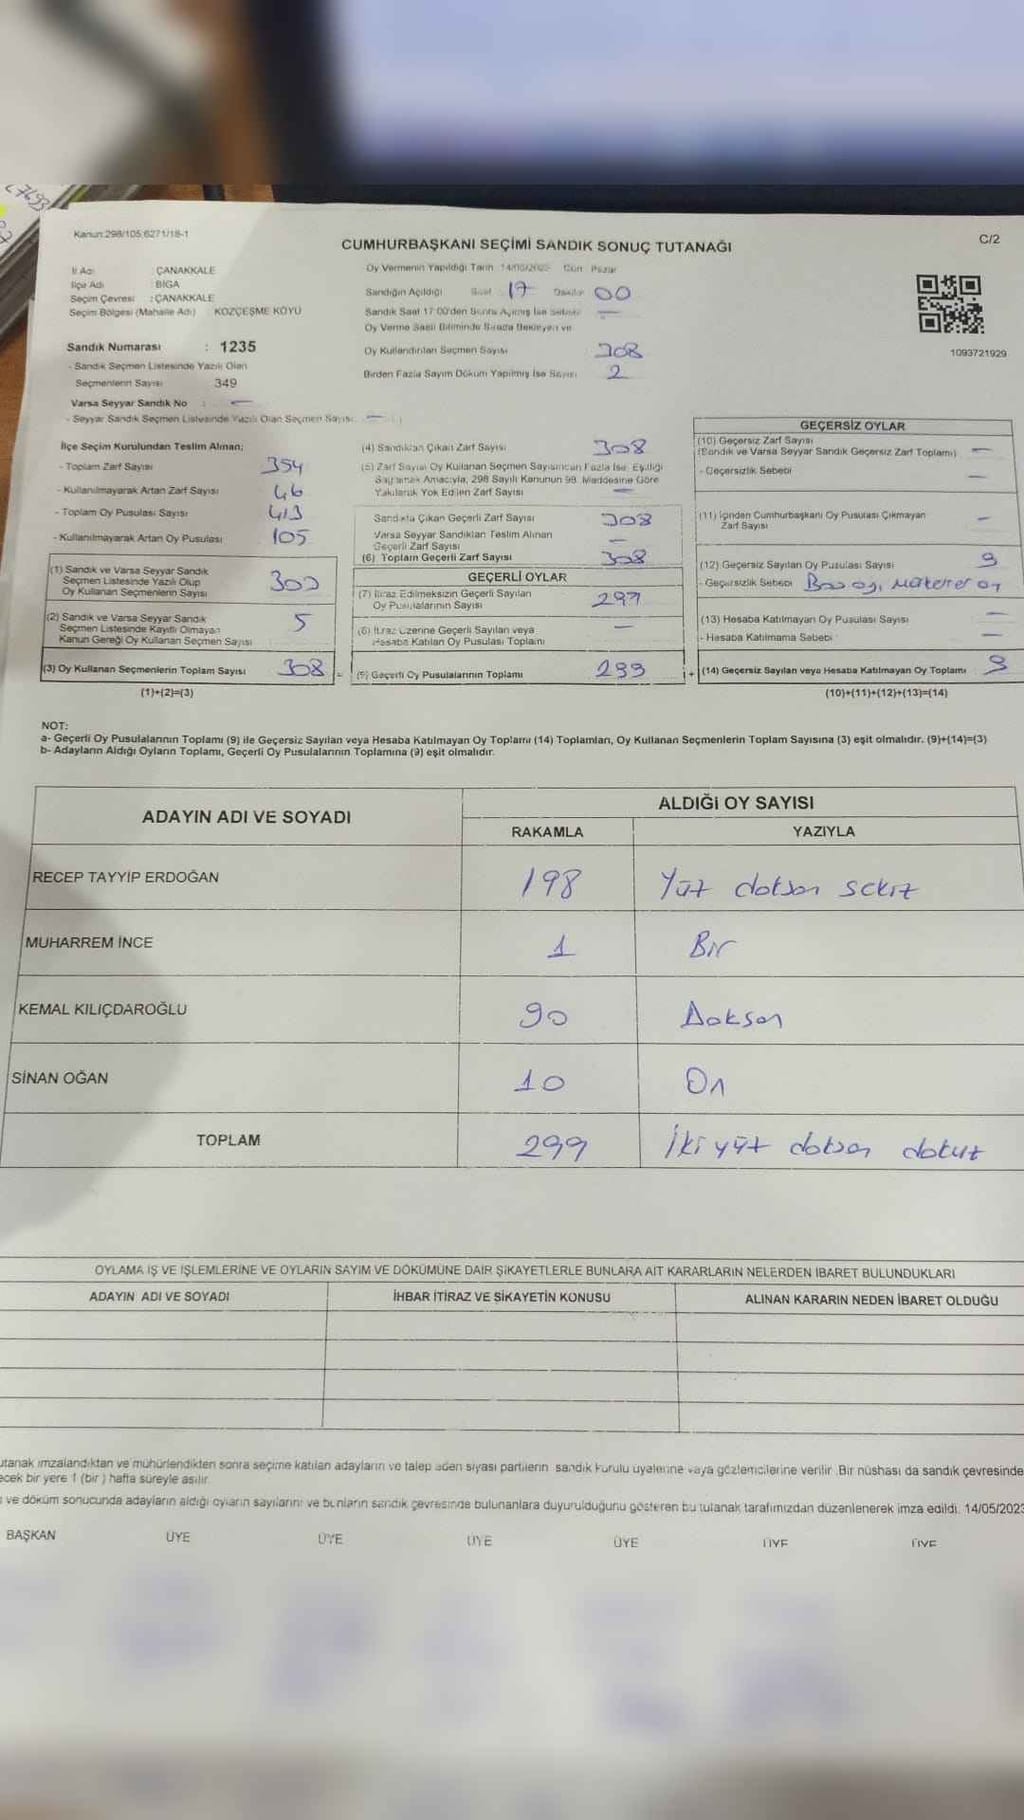 Kanun:298/105;6271/18-1
C/2
CUMHURBAŞKANI SEÇİMİ SANDIK SONUÇ TUTANAĞI
İl Adı : ÇANAKKALE
İlçe Adı : BİGA
Seçim Çevresi : ÇANAKKALE
Seçim Bölgesi (Mahalle Adı) KOZÇEŞME KÖYÜ
Sandık Numarası : 1235
- Sandık Seçmen Listesinde Yazılı Olan
Seçmenlerin Sayısı 349
Varsa Seyyar Sandık No : -
- Seyyar Sandık Seçmen Listesinde Yazılı Olan Seçmen Sayısı -
Oy Vermenin Yapıldığı Tarih 14/05/2023 Gün Pazar
Sandığın Açıldığı Saat 17 Dakika 00
Sandık Saat 17:00'den Sonra Açılmış İse Sebebi -
Oy Verme Saati Bitiminde Sırada Bekleyen ve
Oy Kullandırılan Seçmen Sayısı 308
Birden Fazla Sayım Döküm Yapılmış İse Sayısı 2
1093721929
İlçe Seçim Kurulundan Teslim Alınan;
- Toplam Zarf Sayısı 354
- Kullanılmayarak Artan Zarf Sayısı 46
- Toplam Oy Pusulası Sayısı 413
- Kullanılmayarak Artan Oy Pusulası 105
(1) Sandık ve Varsa Seyyar Sandık
Seçmen Listesinde Yazılı Olup
Oy Kullanan Seçmenlerin Sayısı
(2) Sandık ve Varsa Seyyar Sandık
Seçmen Listesinde Kayıtlı Olmayan
Kanun Gereği Oy Kullanan Seçmen Sayısı 5
(3) Oy Kullanan Seçmenlerin Toplam Sayısı 308
(1)+(2)=(3)
(4) Sandıktan Çıkan Zarf Sayısı 308
(5) Zarf Sayısı Oy Kullanan Seçmen Sayısından Fazla İse, Eşitliği
Sağlamak Amacıyla, 298 Sayılı Kanunun 98. Maddesine Göre
Yakılarak Yok Edilen Zarf Sayısı -
Sandıkta Çıkan Geçerli Zarf Sayısı 308
Varsa Seyyar Sandıktan Teslim Alınan
Geçerli Zarf Sayısı -
(6) Toplam Geçerli Zarf Sayısı 308
GEÇERLİ OYLAR
(7) İtiraz Edilmeksizin Geçerli Sayılan
Oy Pusulalarının Sayısı 299
(8) İtiraz Üzerine Geçerli Sayılan veya
Hesaba Katılan Oy Pusulası Toplamı -
= (9) Geçerli Oy Pusulalarının Toplamı 299
GEÇERSİZ OYLAR
(10) Geçersiz Zarf Sayısı
(Sandık ve Varsa Seyyar Sandık Geçersiz Zarf Toplamı) -
- Geçersizlik Sebebi -
(11) İçinden Cumhurbaşkanı Oy Pusulası Çıkmayan
Zarf Sayısı -
(12) Geçersiz Sayılan Oy Pusulası Sayısı 9
- Geçersizlik Sebebi Boş oy, mükerrer oy
(13) Hesaba Katılmayan Oy Pusulası Sayısı -
- Hesaba Katılmama Sebebi -
+ (14) Geçersiz Sayılan veya Hesaba Katılmayan Oy Toplamı 9
(10)+(11)+(12)+(13)=(14)
NOT:
a- Geçerli Oy Pusulalarının Toplamı (9) ile Geçersiz Sayılan veya Hesaba Katılmayan Oy Toplamı (14) Toplamları, Oy Kullanan Seçmenlerin Toplam Sayısına (3) eşit olmalıdır. (9)+(14)=(3)
b- Adayların Aldığı Oyların Toplamı, Geçerli Oy Pusulalarının Toplamına (9) eşit olmalıdır.
ADAYIN ADI VE SOYADI
ALDIĞI OY SAYISI
RAKAMLA YAZIYLA
RECEP TAYYİP ERDOĞAN 198 Yüz doksan sekiz
MUHARREM İNCE 1 Bir
KEMAL KILIÇDAROĞLU 90 Doksan
SİNAN OĞAN 10 On
TOPLAM 299 İki yüz doksan dokuz
OYLAMA İŞ VE İŞLEMLERİNE VE OYLARIN SAYIM VE DÖKÜMÜNE DAİR ŞİKAYETLERLE BUNLARA AİT KARARLARIN NELERDEN İBARET BULUNDUKLARI
ADAYIN ADI VE SOYADI İHBAR İTİRAZ VE ŞİKAYETİN KONUSU ALINAN KARARIN NEDEN İBARET OLDUĞU
utanak imzalandıktan ve mühürlendikten sonra seçime katılan adayların ve talep eden siyasi partilerin sandık kurulu üyelerine veya gözlemcilerine verilir. Bir nüshası da sandık çevresinde
ecek bir yere 1 (bir ) hafta süreyle asılır.
ve döküm sonucunda adayların aldığı oyların sayılarını ve bunların sandık çevresinde bulunanlara duyurulduğunu gösteren bu tutanak tarafımızdan düzenlenerek imza edildi. 14/05/2023
BAŞKAN ÜYE ÜYE ÜYE ÜYE ÜYE ÜYE